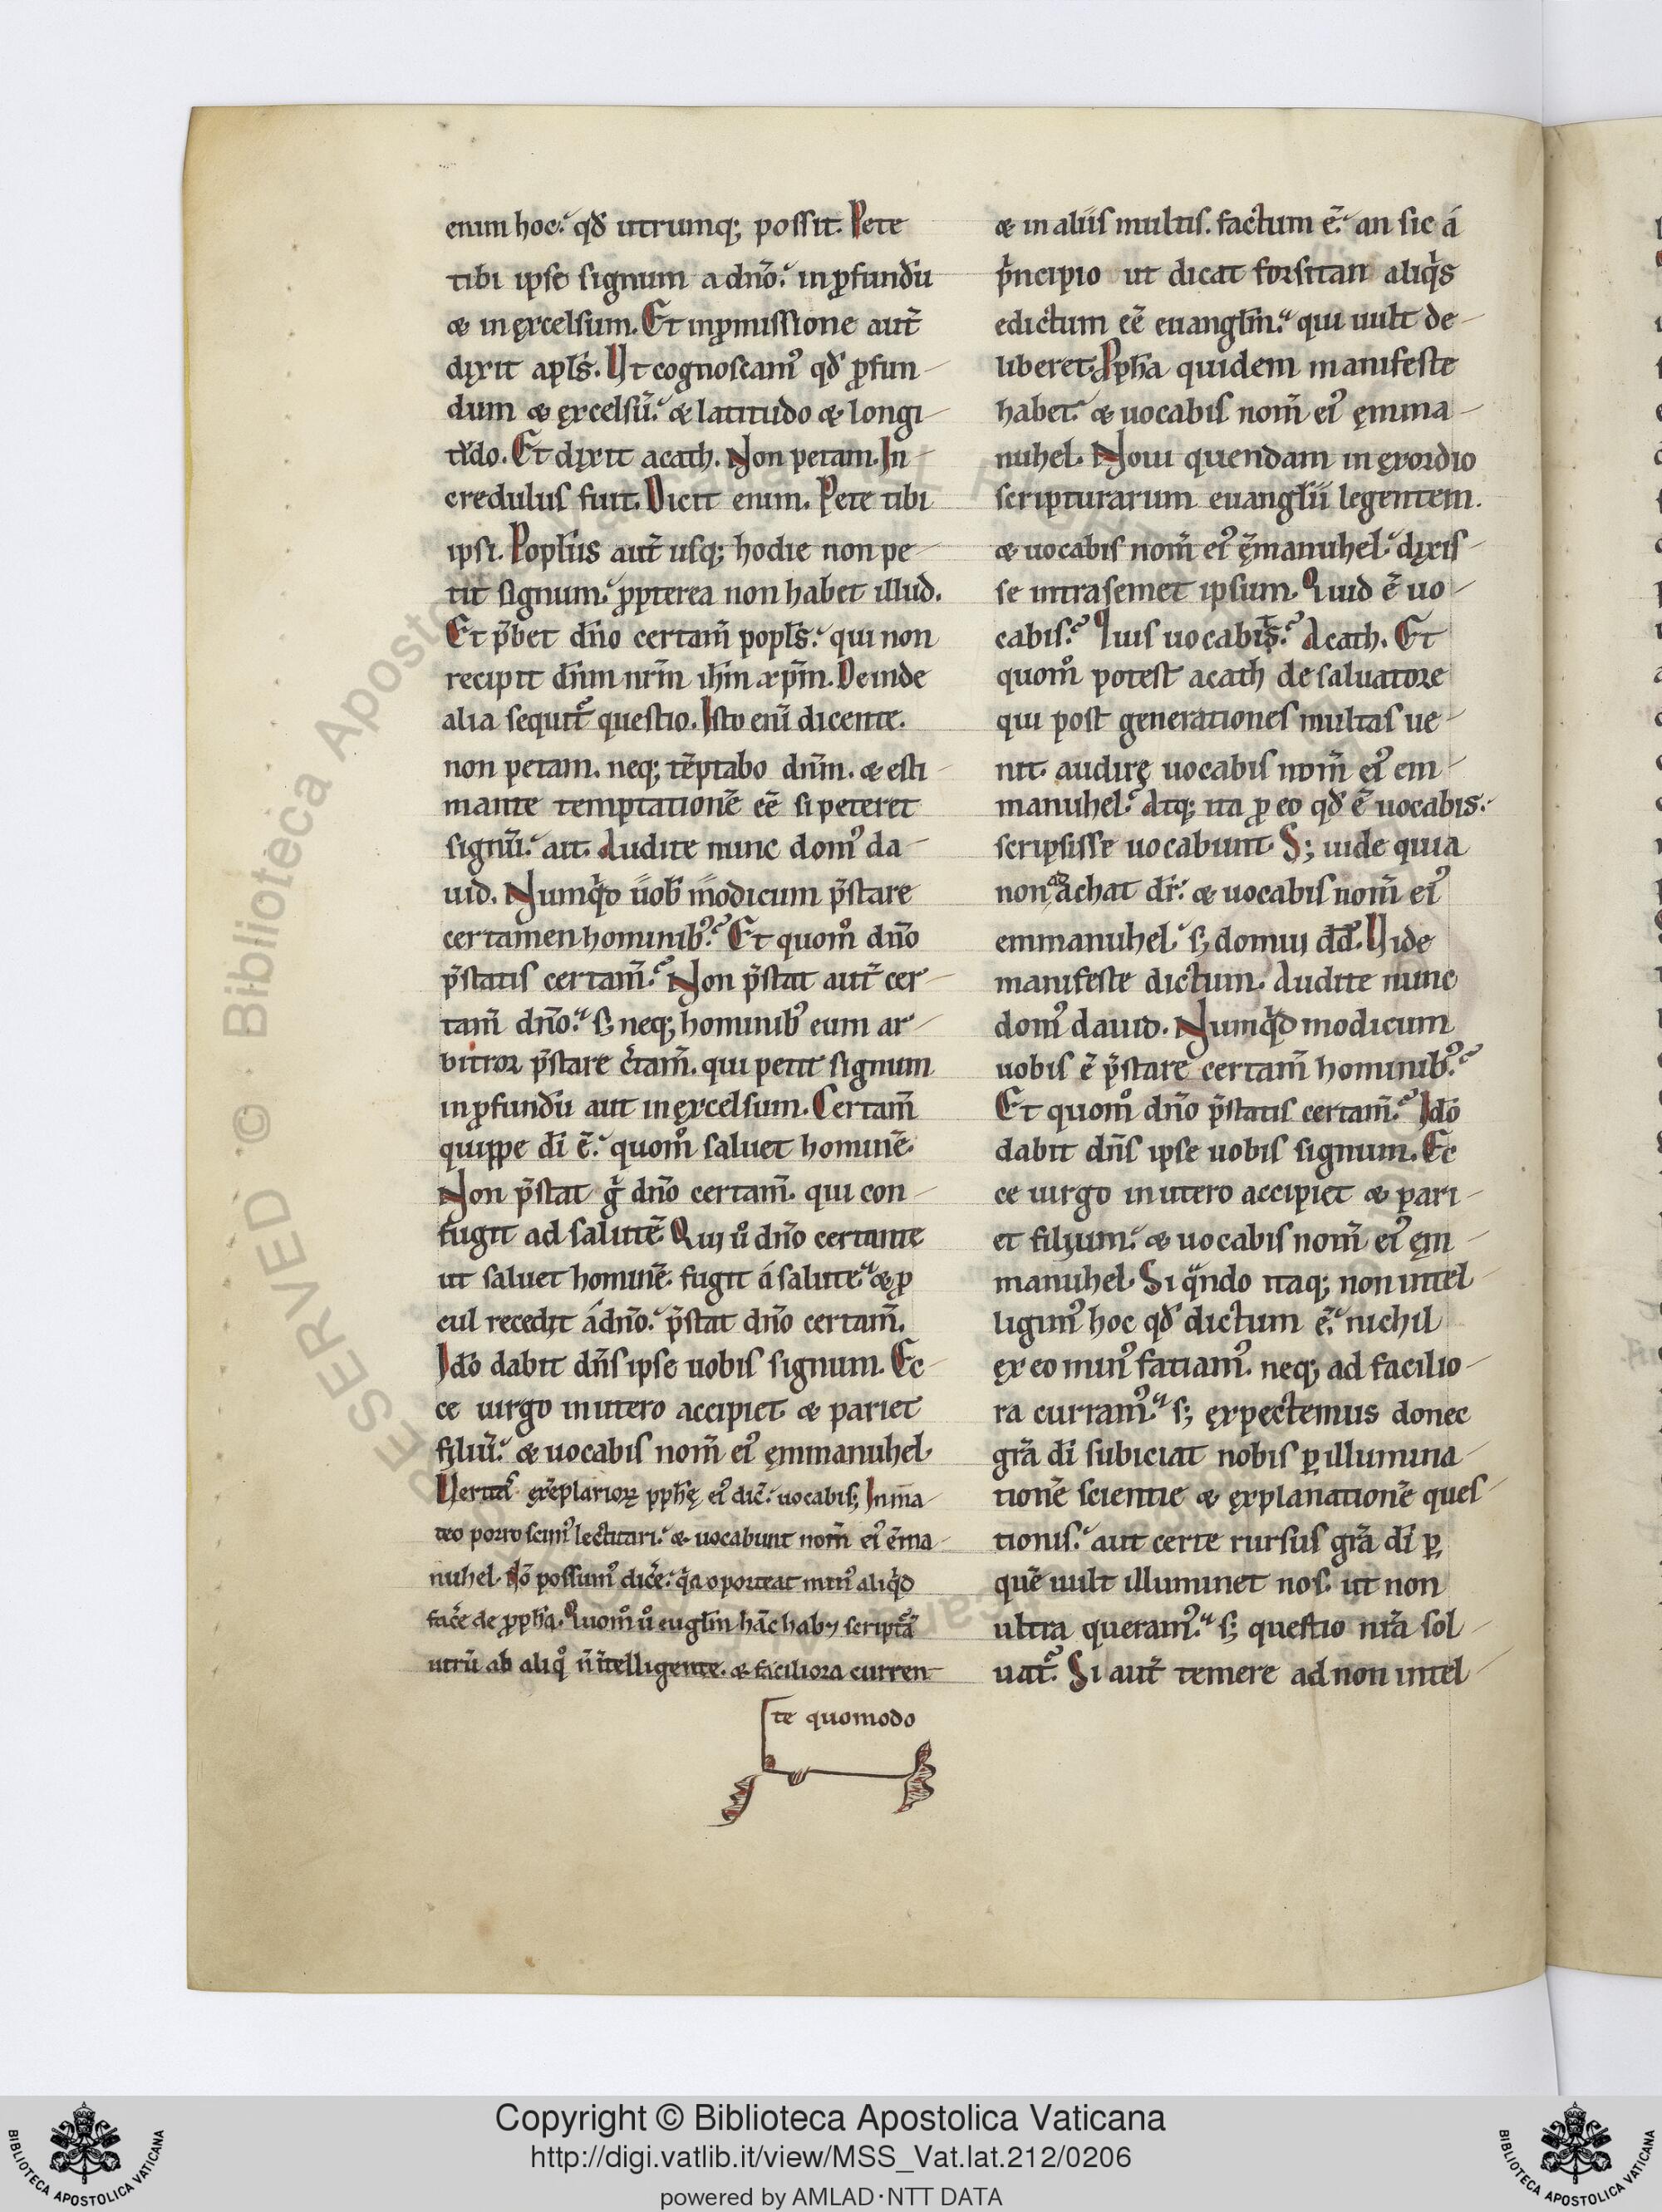 enim hoc. qđ utrumq; possit. Pete
tibi ipse signum a dño. in ꝓfundũ
& in ęxcelsum. Et in ꝓmissione aut̃
dixit apls̃. Vt cognoscamꝰ qđ ꝓfun-
dum & ęxcelsũ. & latitudo & longi-
tudo. Et dixit acath. Non petam. In-
credulus fuit. Dicit enim. Pete tibi
ipsi. Popl̃us aut̃ usq; hodie non pe-
tit signum. ꝓpterea non habet illud.
Et p̃bet dño certam̃ popl̃s. qui non
recipit dñm nr̃m ihm̃ xp̃m. Deinde
alia sequit̃ questio. Isto enĩ dicente.
non petam. neq; tẽptabo dñm. & esti-
mante temptationẽ eẽ si peteret
signũ. ait. Audite nunc domꝰ da-
uid. Numqͥd uob̃ modicum p̃stare
certamen hominibꝰ. Et quom̊ dño
p̃statis certam̃. Non p̃stat aut̃ cer-
tam̃ dño. s; neq; hominibꝰ eum ar-
bitror p̃stare c̃tam̃. qui petit signum
in ꝓfundũ aut in ęxcelsum. Certam̃
quippe dĩ ẽ. quom̊ saluet hominẽ.
Non p̃stat g̊ dño certam̃. qui con-
fugit ad salutẽ. Qui ů dño certante
ut saluet hominẽ. fugit á salute. & ꝓ
cul recedit á dño. p̃stat dño certam̃.
Ido dabit dñs ipse uobis signum. Ec-
ce uirgo in utero accipiet & pariet
filiũ. & uocabis nom̃ eiꝰ ęmmanuhel.
Veritas ęxẽplarioꝝ pph̃ę eiꝰ dic̃. uocabis; In ma-
teo porro scimꝰ lectitari. & uocabunt nom̃ eiꝰ ẽma-
nuhel. Nõ possumꝰ dic̃e. qͣa oporteat minꝰ aliqͥd
fac̃e de ꝓph̃a. Quom̊ ů euglm̃ hãc hab; scriptã
utrũ ab aliqͦ ñ ĩtelligente. & faciliora curren-
te quomodo
& in aliis multis. factum ẽ. an sic á
pͥncipio ut dicat forsitan aliqͥs
edictum eẽ euanglm̃. qui uult de-
liberet. Pph̃a quidem manifeste
habet. & uocabis nom̃ eiꝰ ęmma-
nuhel. Noui quendam in ęxordio
scripturarum euangl̃ii legentem.
& uocabis nom̃ eiꝰ ęmanuhel. dixis-
se intra semet ipsum. Quid ẽ uo-
cabis. Quis uocabis. Acath. Et
quom̊ potest acath de saluatore
qui post generationes multas ue-
nit. audirę uocabis nom̃ eiꝰ em-
manuhel. Atq; ita ꝓ eo qđ ẽ uocabis.
scripsisse uocabunt. S; uide quia
non ad achat dr̃. & uocabis nom̃ eiꝰ
emmanuhel. s; domui dd̃. Vide
manifeste dictum. Audite nunc
domꝰ dauid. Numqͥd modicum
uobis ẽ p̃stare certam̃ hominibꝰ.
Et quom̊ dño p̃statis certam̃. Ido
dabit dñs ipse uobis signum. Ec
ce uirgo in utero accipiet & pari-
et filium. & uocabis nom̃ eiꝰ ęm-
manuhel. Si qͣndo itaq; non intel-
ligimꝰ hoc qđ dictum ẽ. nichil
ęx eo minꝰ fatiamꝰ. neq; ad facilio-
ra curramꝰ. s; ęxpectemus donec
gr̃a dĩ subiciat nobis ꝑ illumina-
tionẽ scientie & ęxplanationẽ ques-
tionis. aut certe rursus gr̃a dĩ ꝑ
quẽ uult illuminet nos. ut non
ultra queramꝰ. s; questio nr̃a sol-
uat̃. Si aut̃ temere ad non intel-
Copyright © Biblioteca Apostolica Vaticana
http://digi.vatlib.it/view/MSS_Vat.lat.212/0206
powered by AMLAD·NTT DATA
BIBLIOTECA APOSTOLICA VATICANA
BIBLIOTECA APOSTOLICA VATICANA